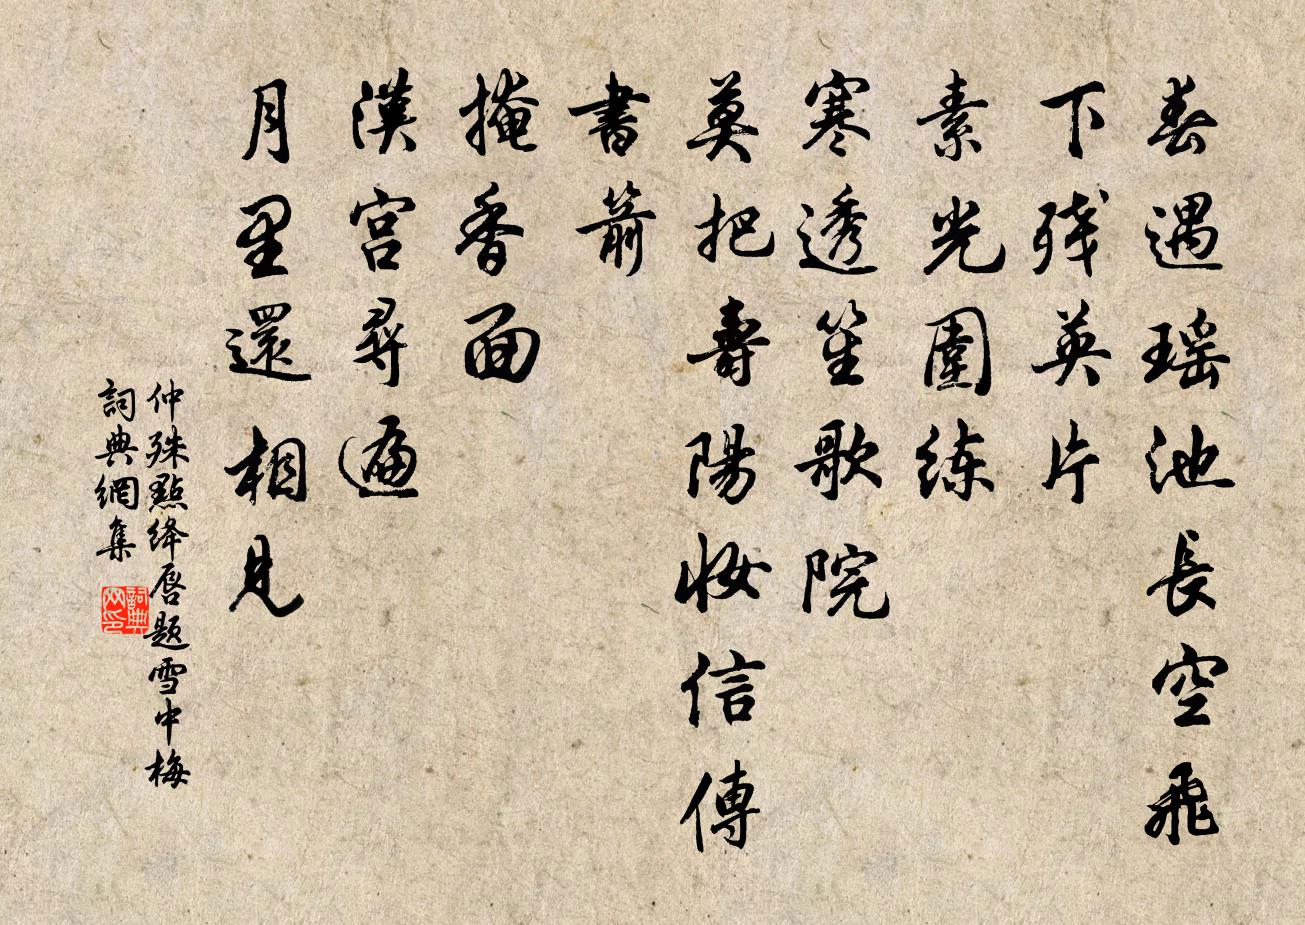 春遇瑶池長空飛
下残英片
素光圍练
寒透笙歌院
莫把壽陽妝信傳
書箭
掩香面
漢宫尋遍
月里還相見
仲殊點绛唇題雪中梅
詞典網集
詞典网印